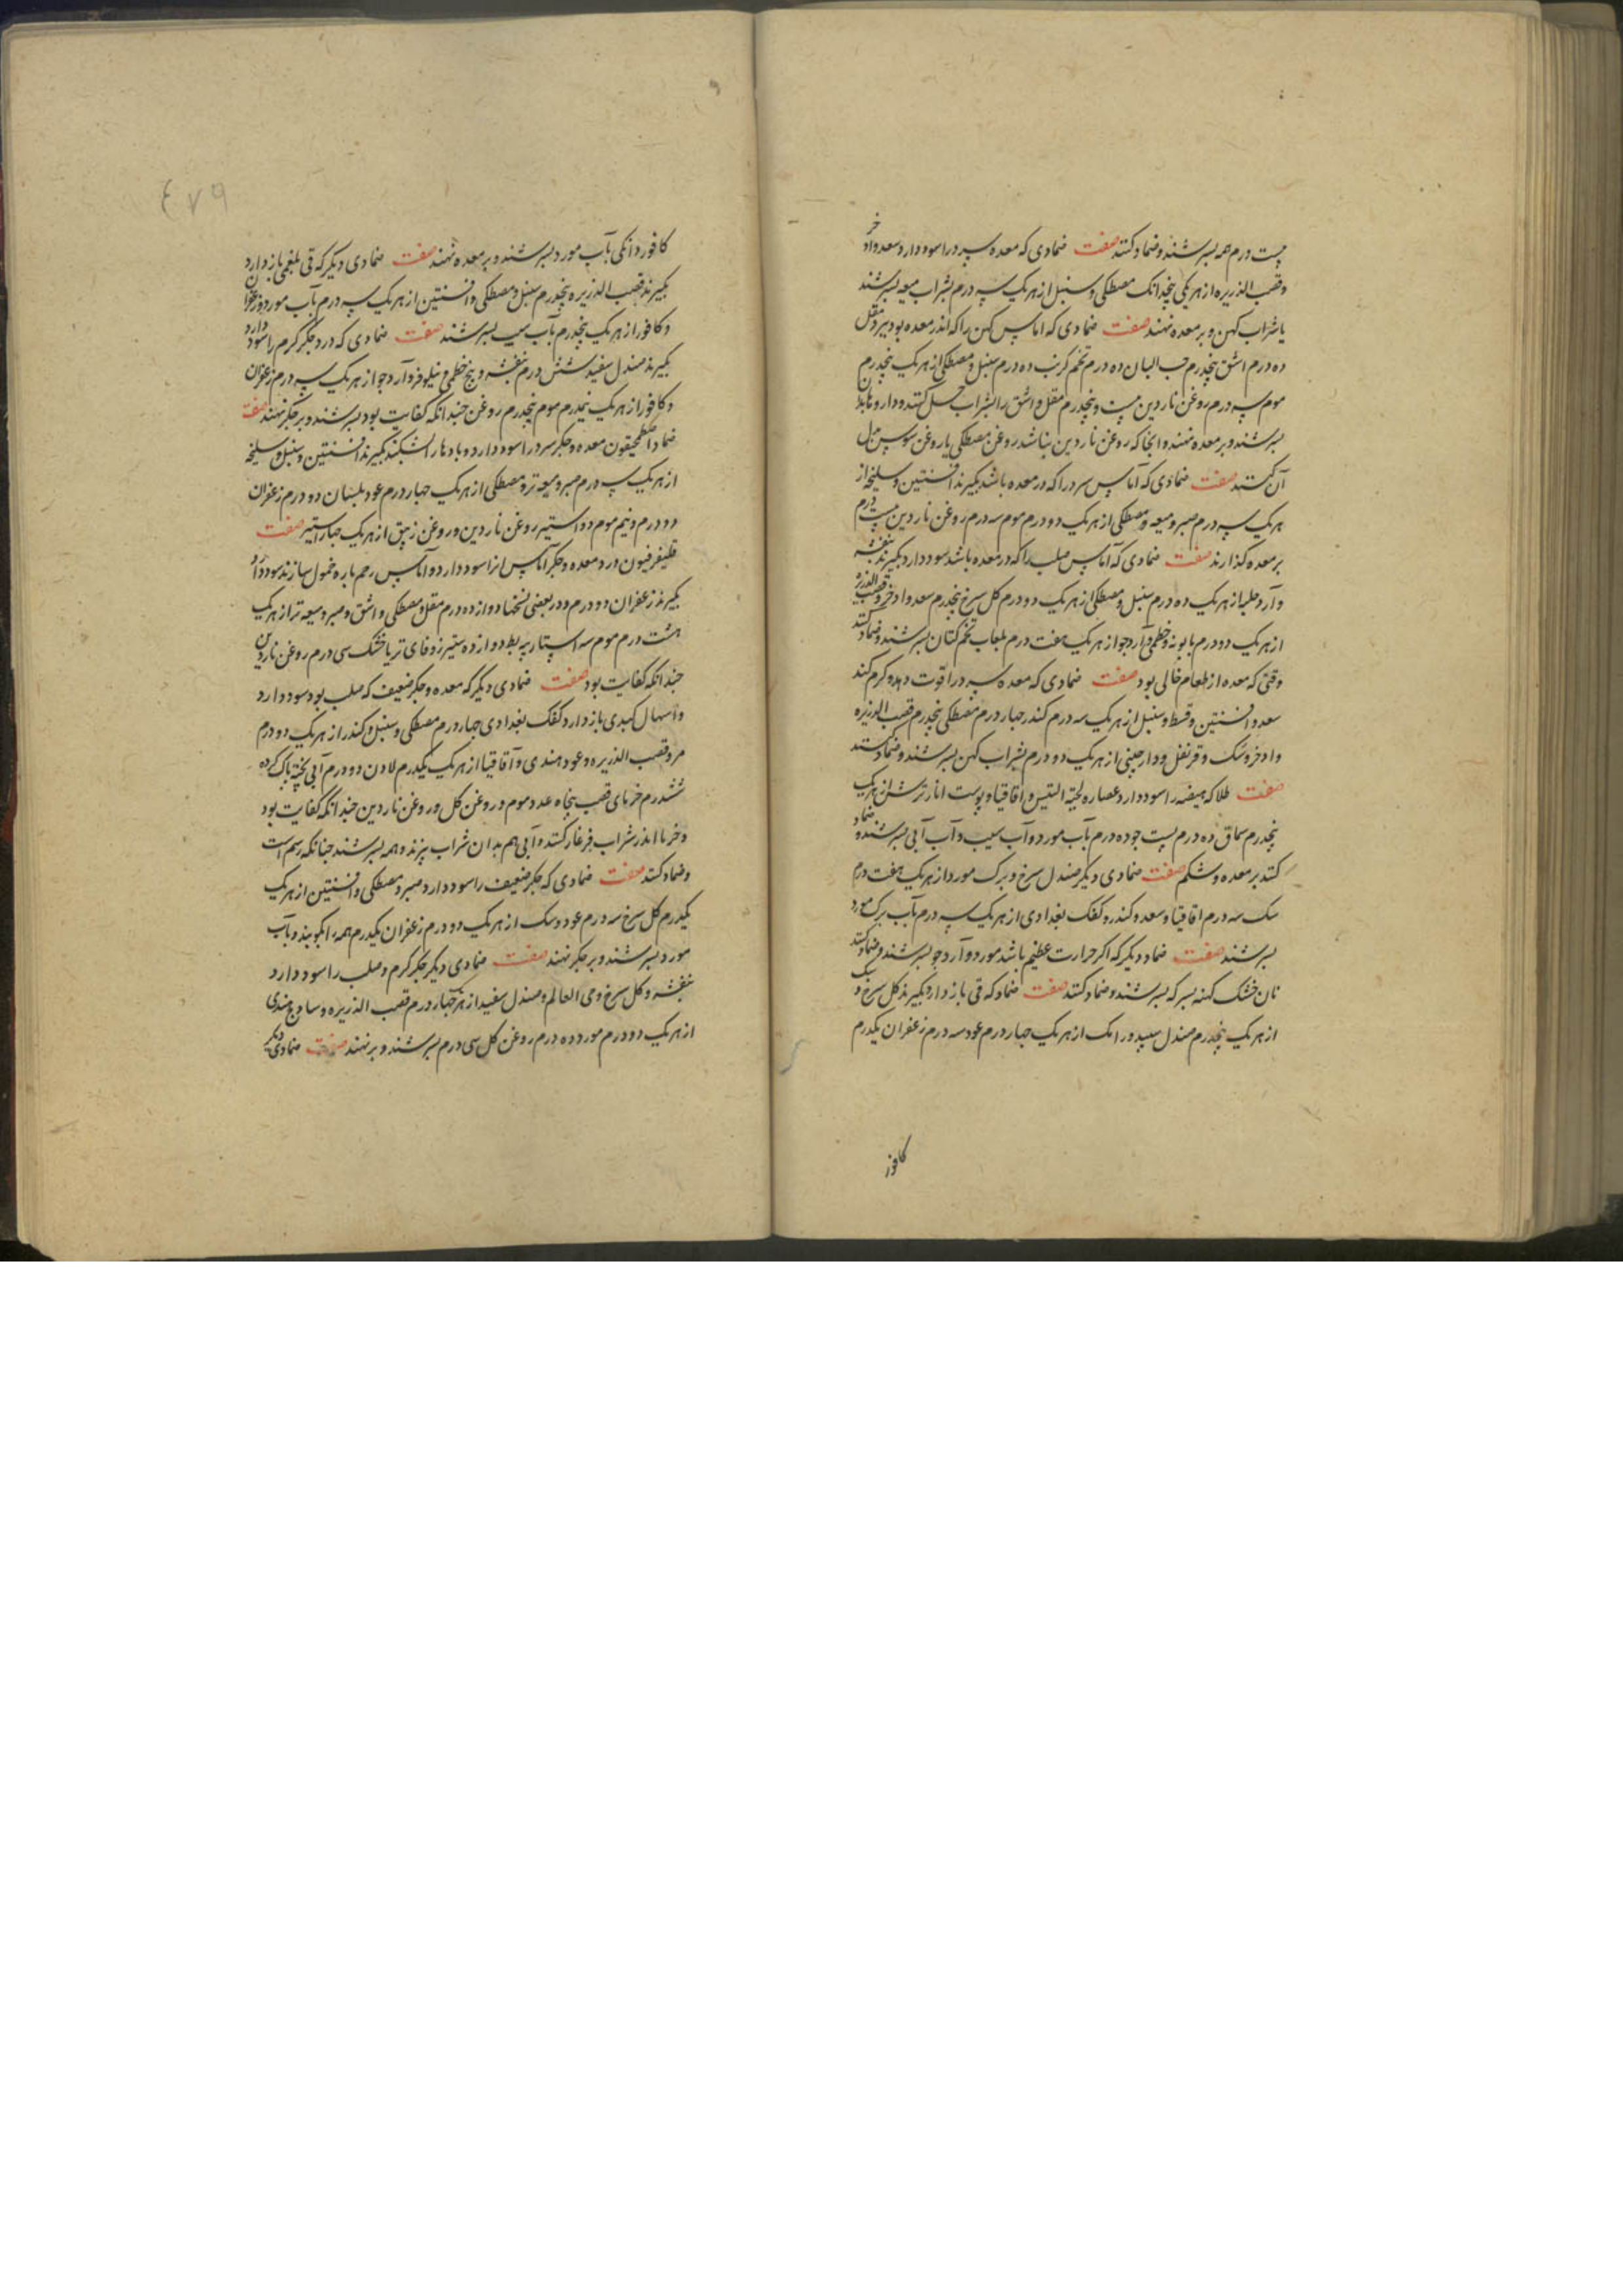 بیست درم همه بسرشند و ضماد کنند صفت ضمادی که معده سرد را سود دارد سعد و اذخر
و قصب الذریره از هر یکی پنجدانک مصطکی و سنبل از هر یک سه درم بشراب میعه بسرشند
یا شراب کهن و بر معده نهند صفت ضمادی که اماس کهن را که اندر معده بود ببرد مقل
ده درم اشق پنجدرم حب البان ده درم تخم کرنب ده درم سنبل و مصطکی از هر یک پنجدرم
موم سه درم روغن ناردین بیست و پنجدرم مقل و اشق را بشراب حل کنند و داروها بدان
بسرشند و بر معده نهند و انجا که روغن ناردین نباشد روغن مصطکی یا روغن سوسن بدل
آن کنند صفت ضمادی که آماس سرد را که در معده باشد بکیرند افسنتین و سلیخه از
هر یک سه درم صبر و میعه و مصطکی از هر یک دو درم موم سه درم روغن ناردین بیست درم
بر معده کذارند صفت ضمادی که آماس صلب را که در معده باشد سود دارد بکیرند بنفشه
و آرد حلبه از هر یک ده درم سنبل و مصطکی از هر یک دو درم کل سرخ پنجدرم سعد و اذخر و قصب الذریره
از هر یک دو درم بابونه و خطمی و آرد جو از هر یک هفت درم بلعاب تخم کتان بسرشند و ضماد کنند
وقتی که معده از طعام خالی بود صفت ضمادی که معده سرد را قوت دهد و کرم کند
سعد و افسنتین و قسط و سنبل از هر یک سه درم کندر چهار درم مصطکی پنجدرم قصب الذریره
و اذخر و سک و قرنفل و دارچینی از هر یک دو درم بشراب کهن بسرشند و ضماد کنند
صفت طلا که هیضه را سود دارد عصاره لحیة التیس و اقاقیا و پوست انار ترش از هر یک
پنجدرم سماق ده درم پست جو ده درم بآب مورد و آب سیب و آب آبی بسرشند و ضماد
کنند بر معده و شکم صفت ضمادی دیکر صندل سرخ و برک مورد از هر یک هفت درم
سک سه درم اقاقیا و سعد و کندر و کعک بغدادی از هر یک سه درم بآب برک مورد
بسرشند صفت ضماد دیکر که اکر حرارت عظیم باشد مورد و آرد جو بسرشند و ضماد کنند
نان خشک کهنه بسرکه بسرشند و ضماد کنند صفت ضماد که قی باز دارد بکیرند کل سرخ و سک
از هر یک پنجدرم صندل سپید و رامک از هر یک چهار درم عود سه درم زعفران یکدرم
کافور
٤٧٩
کافور دانکی بآب مورد بسرشند و بر معده نهند صفت ضمادی دیکر که قی بلغمی باز دارد
بکیرند قصب الذریره پنجدرم سنبل و مصطکی و افسنتین از هر یک سه درم بآب مورد و زعفران
و کافور از هر یک پنجدرم بآب سیب بسرشند صفت ضمادی که درد جکر کرم را سود دارد
بکیرند صندل سفید شش درم بنفشه و بیخ خطمی و نیلوفر و آرد جو از هر یک سه درم زعفران
و کافور از هر یک نیمدرم موم پنجدرم روغن چندانکه کفایت بود بسرشند و بر جکر نهند صفت
ضماد اصطمحیقون معده و جکر سرد را سود دارد و بادها را بشکند بکیرند افسنتین و سنبل و سلیخه
از هر یک سه درم صبر و میعه تر و مصطکی از هر یک چهار درم عود بلسان دو درم زعفران
دو درم و نیم موم دو استیر روغن ناردین و روغن زنبق از هر یک چهار استیر صفت
قلیفرفیون درد معده و جکر آماس انرا سود دارد و آماس رحم پاره خمول سازند سود دارد
بکیرند زعفران دو درم و در بعضی نسخها دوازده درم مقل و مصطکی و اشق و صبر و میعه تر از هر یک
هشت درم موم سه استار پیه بط دوازده ستیر زوفای تر یا خشک سی درم روغن ناردین
چندانکه کفایت بود صفت ضمادی دیکر که معده و جکر ضعیف که صلب بود سود دارد
و اسهال کبدی باز دارد کعک بغدادی چهار درم مصطکی و سنبل و کندر از هر یک دو درم
مر و قصب الذریره و عود هندی و آقاقیا از هر یک یکدرم لادن دو درم آبی پخته پاک کرده
ششدرم خرمای قصب پنجاه عدد موم و روغن کل و روغن ناردین چندانکه کفایت بود
و خرما اندر شراب فرغار کنند و آبی هم بدان شراب بپزند و همه بسرشند چنانکه رسم است
و ضماد کنند صفت ضمادی که جکر ضعیف را سود دارد صبر و مصطکی و افسنتین از هر یک
یکدرم کل سرخ سه درم عود و سک از هر یک دو درم زعفران یکدرم همه را بکوبند و بآب
مورد بسرشند و بر جکر نهند صفت ضمادی دیکر جکر کرم و صلب را سود دارد
بنفشه و کل سرخ و حی العالم و صندل سفید از هر یک چهار درم قصب الذریره و ساذج هندی
از هر یک دو درم مورد ده درم روغن کل سی درم بسرشند و بر نهند صفت ضمادی دیکر